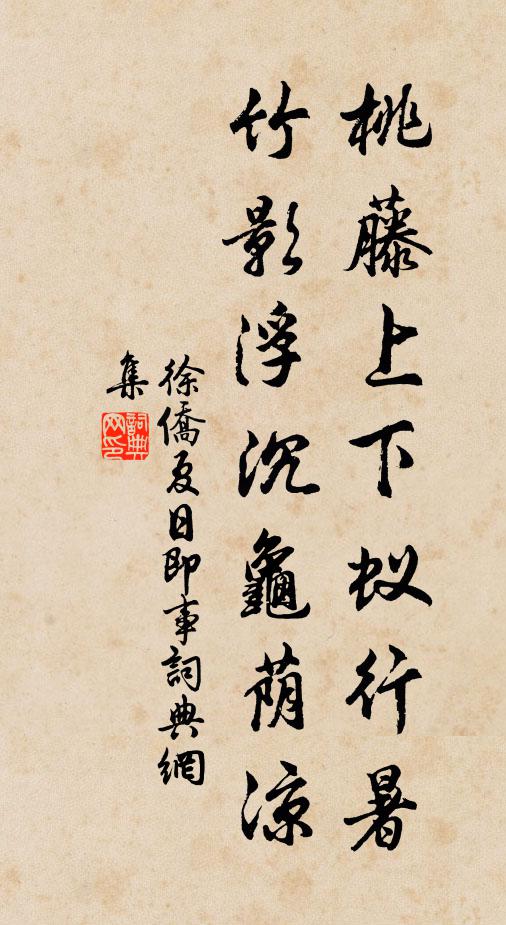 桃藤上下蚁行暑
竹影浮沉龜荫凉
徐僑夏日即事詞典網
集
詞典網印